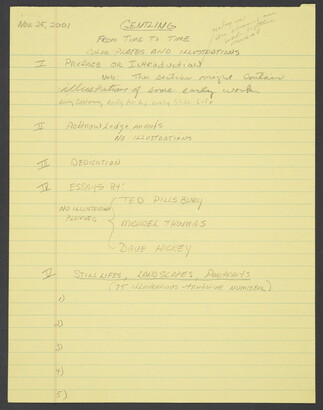 Nov. 25, 2001
GENTLING
FROM TIME TO TIME
COLOR PLATES AND ILLUSTRATIONS
I PREFACE OR INTRODUCTION
Note: This section might contain
illustrations of some early work
early Still Life
II ACKNOWLEDGEMENTS
NO ILLUSTRATIONS
III DEDICATION
IV ESSAYS BY:
TED PILLSBURY
NO ILLUSTRATIONS
MICHAEL THOMAS
DAVE HICKEY
V STILL LIFES, LANDSCAPES, PORTRAITS
(75 ILLUSTRATIONS - TENTATIVE NUMBER)
1)
2)
3)
4)
5)